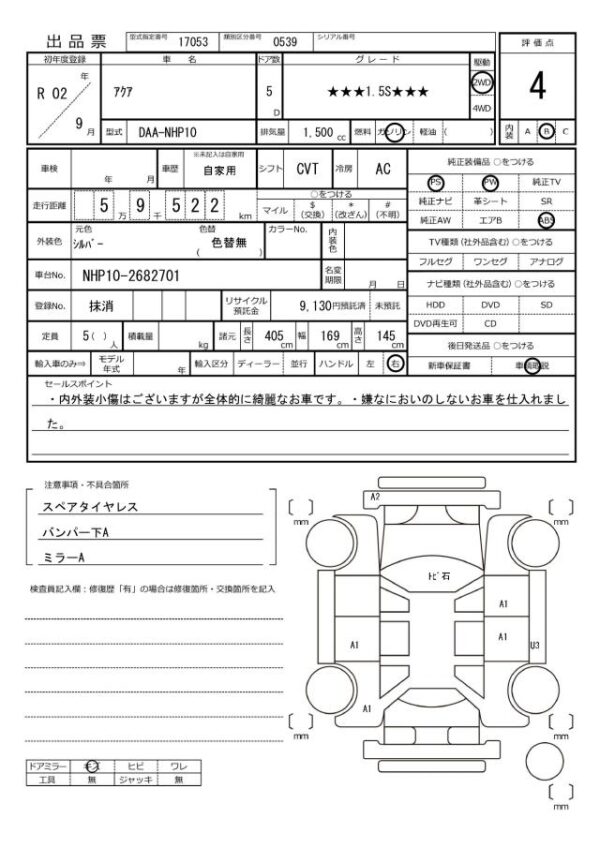 出品票 型式指定番号 17053 類別区分番号 0539 シリアル番号
評価点
初年度登録 車名 ドア数 グレード 駆動
R 02 年 ｱｸｱ 5 D ★★★1.5S★★★ 2WD 4
4WD
9 月 型式 DAA-NHP10 排気量 1,500 cc 燃料 ガソリン 軽油 ( ) 内装 A B C
車検 年 月 車歴 ※未記入は自家用 自家用 シフト CVT 冷房 AC
走行距離 5 万 9 千 5 2 2 km マイル ○をつける $ (交換) * (改ざん) # (不明)
外装色 元色 ｼﾙﾊﾞｰ 色替 色替無 ( ) カラーNo. 内装色
車台No. NHP10-2682701 名変期限 月 日
登録No. 抹消 リサイクル預託金 9,130円預託済 未預託
定員 5( ) 人 積載量 kg 諸元 長さ 405 cm 幅 169 cm 高さ 145 cm
輸入車のみ⇒ モデル年式 年 輸入区分 ディーラー 並行 ハンドル 左 右
純正装備品 ○をつける
PS PW 純正TV
純正ナビ 革シート SR
純正AW エアB ABS
TV種類 (社外品含む) ○をつける
フルセグ ワンセグ アナログ
ナビ種類 (社外品含む) ○をつける
HDD DVD SD
DVD再生可 CD
後日発送品 ○をつける
新車保証書 車輌取説
セールスポイント
・内外装小傷はございますが全体的に綺麗なお車です。・嫌なにおいのしないお車を仕入れまし
た。
注意事項・不具合箇所
スペアタイヤレス
バンパー下A
ミラーA
検査員記入欄：修復歴「有」の場合は修復箇所・交換箇所を記入
ドアミラー キズ ヒビ ワレ
工具 無 ジャッキ 無
A2
[ ] mm
[ ] mm
ﾄﾋﾞ石
A1
A1
A1
U3
A1
[ ] mm
[ ] mm
[ ] mm